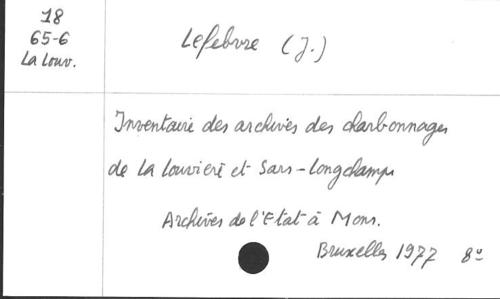 18
65-6
La Louv.
Lefebvre (J.)
Inventaire des archives des charbonnages
de La Louvière et Sars-Longchamps
Archives de l'Etat à Mons.
Bruxelles 1977 8°